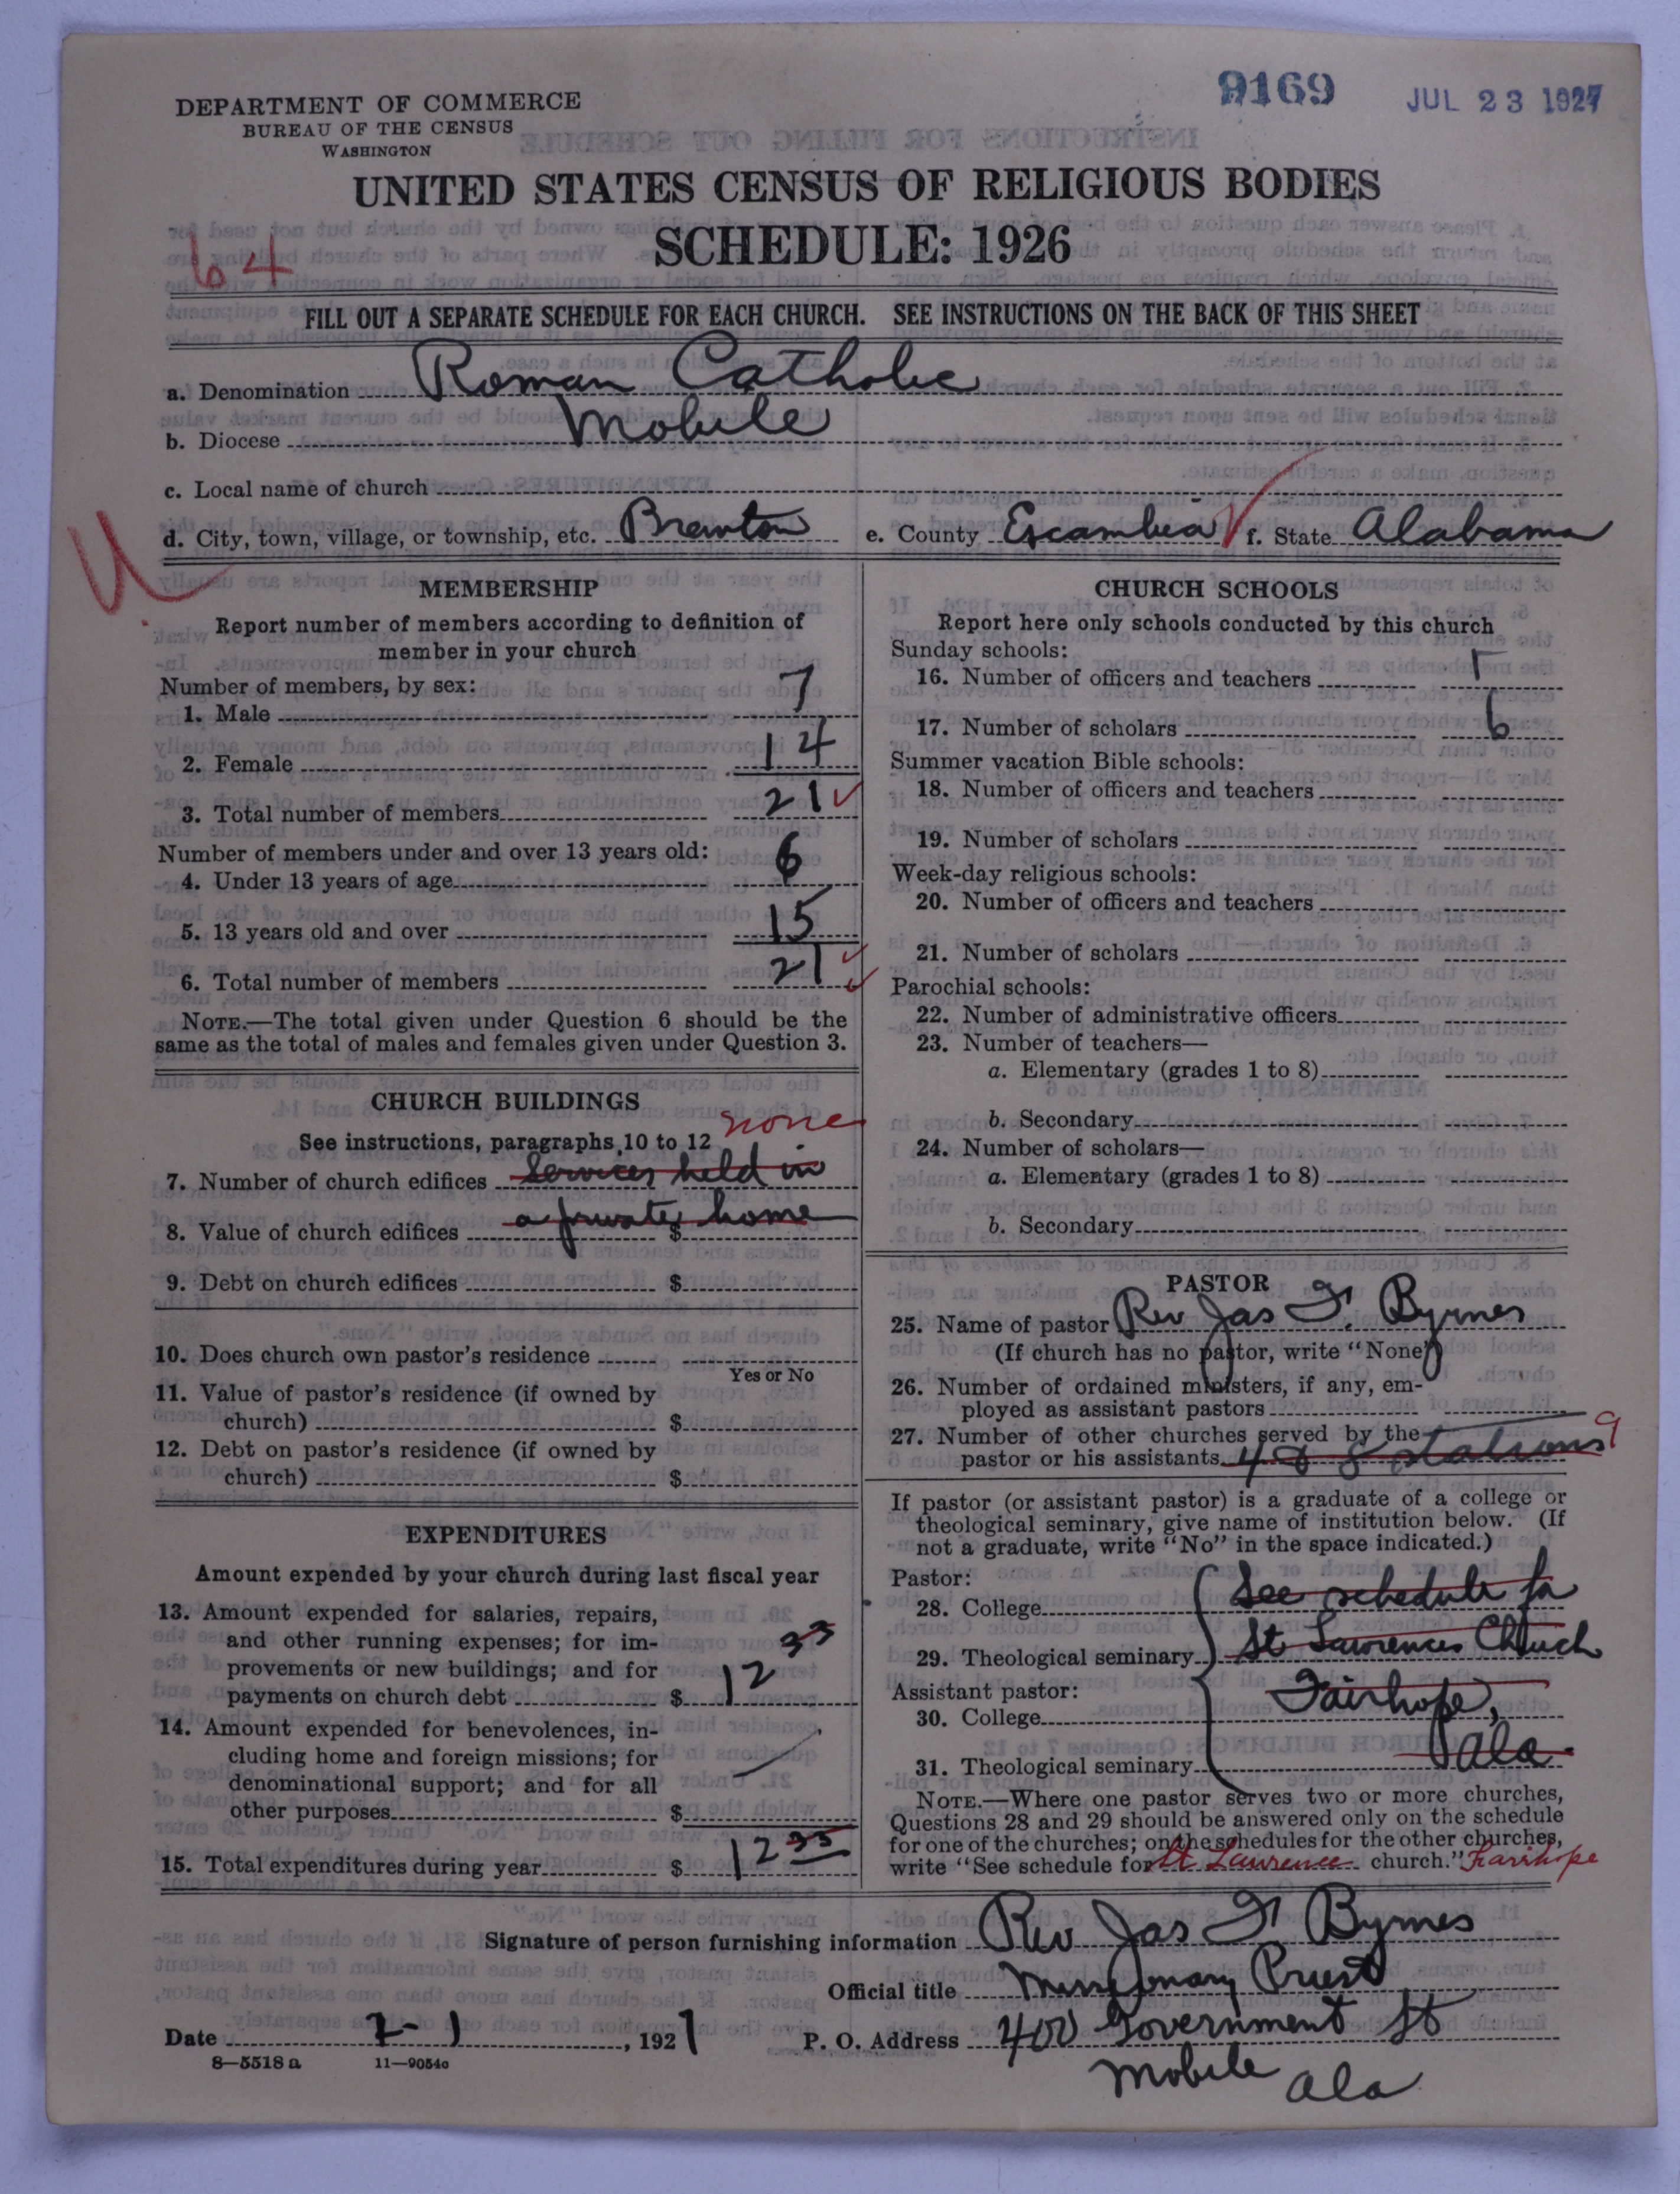 9169 JUL 23 1927
DEPARTMENT OF COMMERCE
BUREAU OF THE CENSUS
WASHINGTON
UNITED STATES CENSUS OF RELIGIOUS BODIES
SCHEDULE: 1926
64
FILL OUT A SEPARATE SCHEDULE FOR EACH CHURCH. SEE INSTRUCTIONS ON THE BACK OF THIS SHEET
a. Denomination Roman Catholic
b. Diocese Mobile
c. Local name of church
d. City, town, village, or township, etc. Brewton e. County Escambia f. State Alabama
U
MEMBERSHIP
Report number of members according to definition of
member in your church
Number of members, by sex:
1. Male 7
2. Female 14
3. Total number of members 21
Number of members under and over 13 years old:
4. Under 13 years of age 6
5. 13 years old and over 15
6. Total number of members 21
NOTE.—The total given under Question 6 should be the
same as the total of males and females given under Question 3.
CHURCH BUILDINGS
See instructions, paragraphs 10 to 12 none
7. Number of church edifices Services held in
8. Value of church edifices a private home $
9. Debt on church edifices $
10. Does church own pastor's residence
Yes or No
11. Value of pastor's residence (if owned by
church) $
12. Debt on pastor's residence (if owned by
church) $
EXPENDITURES
Amount expended by your church during last fiscal year
13. Amount expended for salaries, repairs,
and other running expenses; for im-
provements or new buildings; and for
payments on church debt $ 12 33
14. Amount expended for benevolences, in-
cluding home and foreign missions; for
denominational support; and for all
other purposes $
15. Total expenditures during year $ 12 33
CHURCH SCHOOLS
Report here only schools conducted by this church
Sunday schools:
16. Number of officers and teachers 1
17. Number of scholars 6
Summer vacation Bible schools:
18. Number of officers and teachers
19. Number of scholars
Week-day religious schools:
20. Number of officers and teachers
21. Number of scholars
Parochial schools:
22. Number of administrative officers
23. Number of teachers—
a. Elementary (grades 1 to 8)
b. Secondary
24. Number of scholars—
a. Elementary (grades 1 to 8)
b. Secondary
PASTOR
25. Name of pastor Rev Jas F. Byrnes
(If church has no pastor, write "None")
26. Number of ordained ministers, if any, em-
ployed as assistant pastors
27. Number of other churches served by the
pastor or his assistants 4 & 8 stations 9
If pastor (or assistant pastor) is a graduate of a college or
theological seminary, give name of institution below. (If
not a graduate, write "No" in the space indicated.)
Pastor:
28. College See schedule for
29. Theological seminary St Lawrences Church
Assistant pastor:
30. College Fairhope,
31. Theological seminary Ala.
NOTE.—Where one pastor serves two or more churches,
Questions 28 and 29 should be answered only on the schedule
for one of the churches; on the schedules for the other churches,
write "See schedule for St Lawrence church." Fairhope
Signature of person furnishing information Rev Jas F Byrnes
Official title Missionary Priest
Date 7-1, 1927 P. O. Address 400 Government St
8—5518 a 11—9054c
Mobile Ala